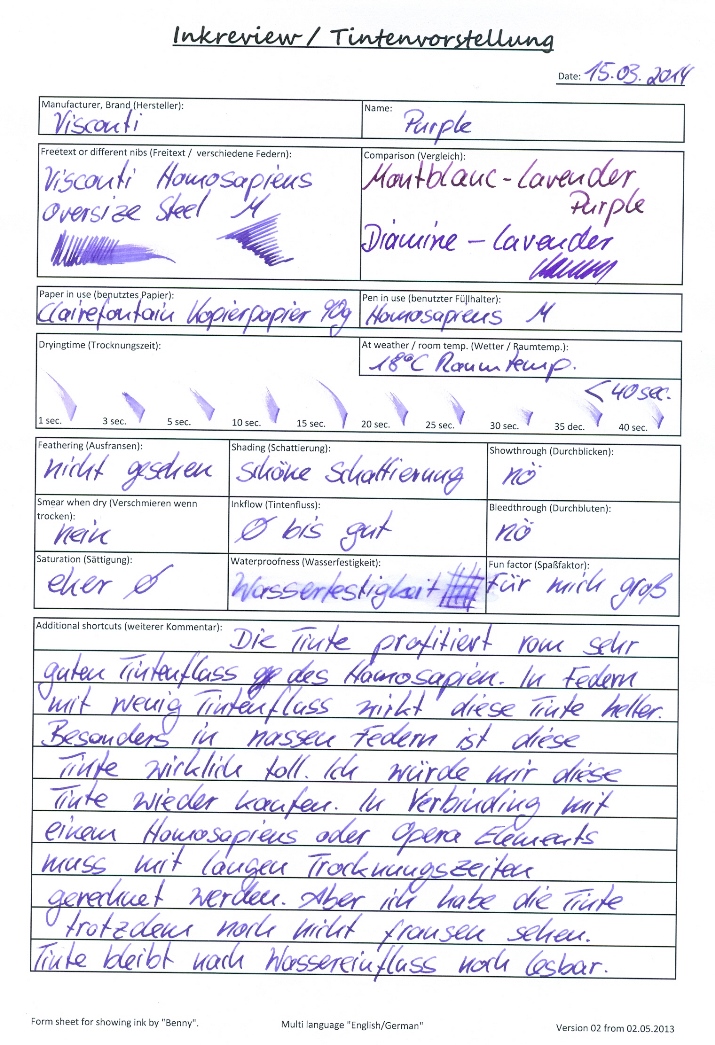 Inkreview / Tintenvorstellung
Date: 15.03.2014
Manufacturer, Brand (Hersteller):
Visconti
Name:
Purple
Freetext or different nibs (Freitext / verschiedene Federn):
Visconti Homosapiens
Oversize Steel M
Comparison (Vergleich):
Montblanc - Lavender
Purple
Diamine - Lavender
Paper in use (benutztes Papier):
Clairefontain Kopierpapier 90g
Pen in use (benutzter Füllhalter):
Homosapiens M
Dryingtime (Trocknungszeit):
At weather / room temp. (Wetter / Raumtemp.):
18°C Raumtemp.
<40 sec.
1 sec. 3 sec. 5 sec. 10 sec. 15 sec. 20 sec. 25 sec. 30 sec. 35 dec. 40 sec.
Feathering (Ausfransen):
nicht gesehen
Shading (Schattierung):
schöne Schattierung
Showthrough (Durchblicken):
nö
Smear when dry (Verschmieren wenn
trocken):
nein
Inkflow (Tintenfluss):
Ø bis gut
Bleedthrough (Durchbluten):
nö
Saturation (Sättigung):
eher Ø
Waterproofness (Wasserfestigkeit):
Wasserfestigkeit
Fun factor (Spaßfaktor):
für mich groß
Additional shortcuts (weiterer Kommentar): Die Tinte profitiert vom sehr
guten Tintenfluss des Homosapien. In Federn
mit wenig Tintenfluss wirkt diese Tinte heller.
Besonders in nassen Federn ist diese
Tinte wirklich toll. Ich würde mir diese
Tinte wieder kaufen. In Verbinding mit
einem Homosapiens oder Opera Elements
muss mit langen Trocknungszeiten
gerechnet werden. Aber ich habe die Tinte
trotzdem noch nicht fransen sehen.
Tinte bleibt nach Wassereinfluss noch lesbar.
Form sheet for showing ink by "Benny".
Multi language "English/German"
Version 02 from 02.05.2013